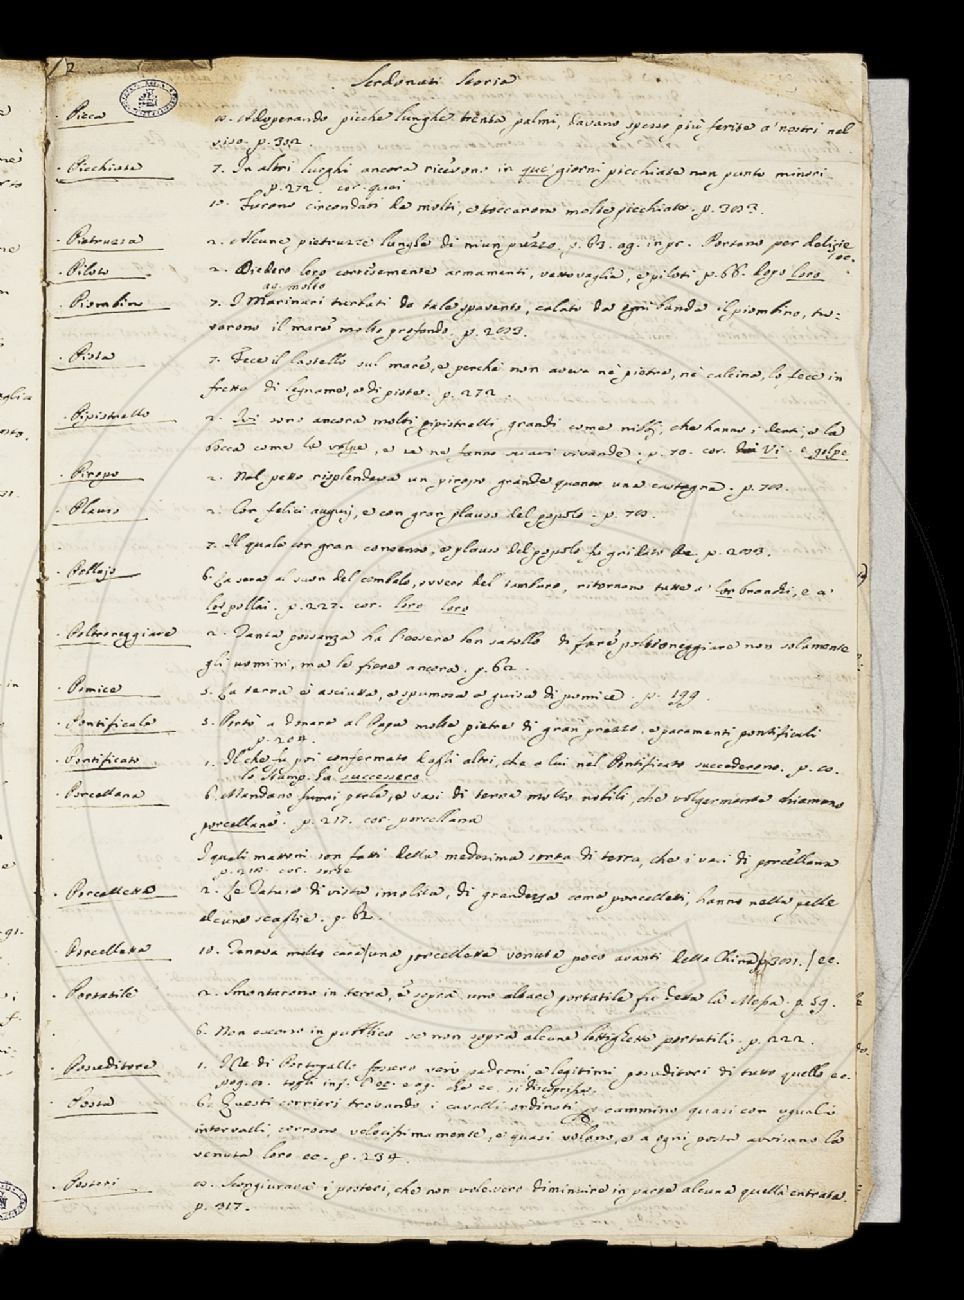 2
Serdonati Storia
Picca 10. Adoperando picche lunghe trenta palmi, davano spesso più ferite a' nostri nel
viso. p. 302.
Picchiata 7. In altri luoghi ancora ricevono in que' giorni picchiate non punto minori.
p. 272. cor. quei
10. Furono circondati da molti, e toccarono molte picchiate. p. 303.
Pietruzza 2. Alcune pietruzze lunghe di niun prezzo. p. 63. ag. in pr. Portano per delizie
ec.
Piloto 2. Diedero loro cortesemente armamenti, vettovaglia, e piloti p. 66. dopo loro
ag. molto
Piombino 7. I Marinari turbati da tale spavento, calato da ogni banda il piombino, tro-
varono il mare molto profondo. p. 203.
Piota 7. Fece il Castello sul mare, e perchè non aveva nè pietre, nè calcina, lo fece in
fretta di legname, e di piote. p. 272.
Pipistrello 2. Ivi sono ancora molti pipistrelli grandi come nibbj, che hanno i denti, e la
bocca come la volpe, e se ne fanno soavi vivande. p. 70. cor. Vi. e golpe
Piropo 2. Nel petto risplendeva un piropo grande quanto una castagna. p. 70.
Plauso 2. Con felici augurj, e con gran plauso del popolo. p. 70.
7. Il quale con gran consenso, e plauso del popolo fu gridato Re. p. 203.
Pollajo 6. La sera al suon del cembalo, ovvero del tamburo, ritornano tutte a' lor branchi, e a'
lor pollai. p. 227. cor. loro loro
Poltroneggiare 2. Tanta possanza ha l'essere ben satollo di fare poltroneggiare non solamente
gli uomini, ma le fiere ancora. p. 62.
Pomice 5. La terra è asciutta, e spumosa a guisa di pomice. p. 199.
Pontificale 5. Portò a donare al Papa molte pietre di gran prezzo, e paramenti pontificali
p. 204.
Pontificato 1. Il che fu poi confermato dagli altri, che a lui nel Pontificato succederono. p. 10.
lo Stamp. ha successero
Porcellana 6. Mandano fuori perle, e vasi di terra molto nobili, che volgarmente chiamano
porcellane. p. 217. cor. porcellana
I quali mattoni son fatti della medesima sorta di terra, che i vasi di porcellana
p. 218. cor. sorte
Porcelletto 2. Le Tatuse di vista insolita, di grandezza come porcelletti, hanno nella pelle
alcune scaglie. p. 62.
Porcelletta 10. Teneva molto cara una porcelletta venuta poco avanti della China p. 301. ec.
Portatile 2. Smontarono in terra, e sopra uno altare portatile fu detta la Messa. p. 59.
6. Non escono in pubblico se non sopra alcune lettighette portatili. p. 222.
Posseditore 1. I Re di Portogallo fossero veri padroni, e legittimi posseditori di tutto quello ec.
pag. 10. ec. si discoprisse.
Posta 6. Questi corrieri trovando i cavalli ordinati pel cammino quasi con uguali
intervalli, corrono velocissimamente, e quasi volano, e a ogni posta avvisano la
venuta loro ec. p. 234.
Posteri 10. Scongiurava i posteri, che non volessero diminuire in parte alcuna quella entrata.
p. 317.